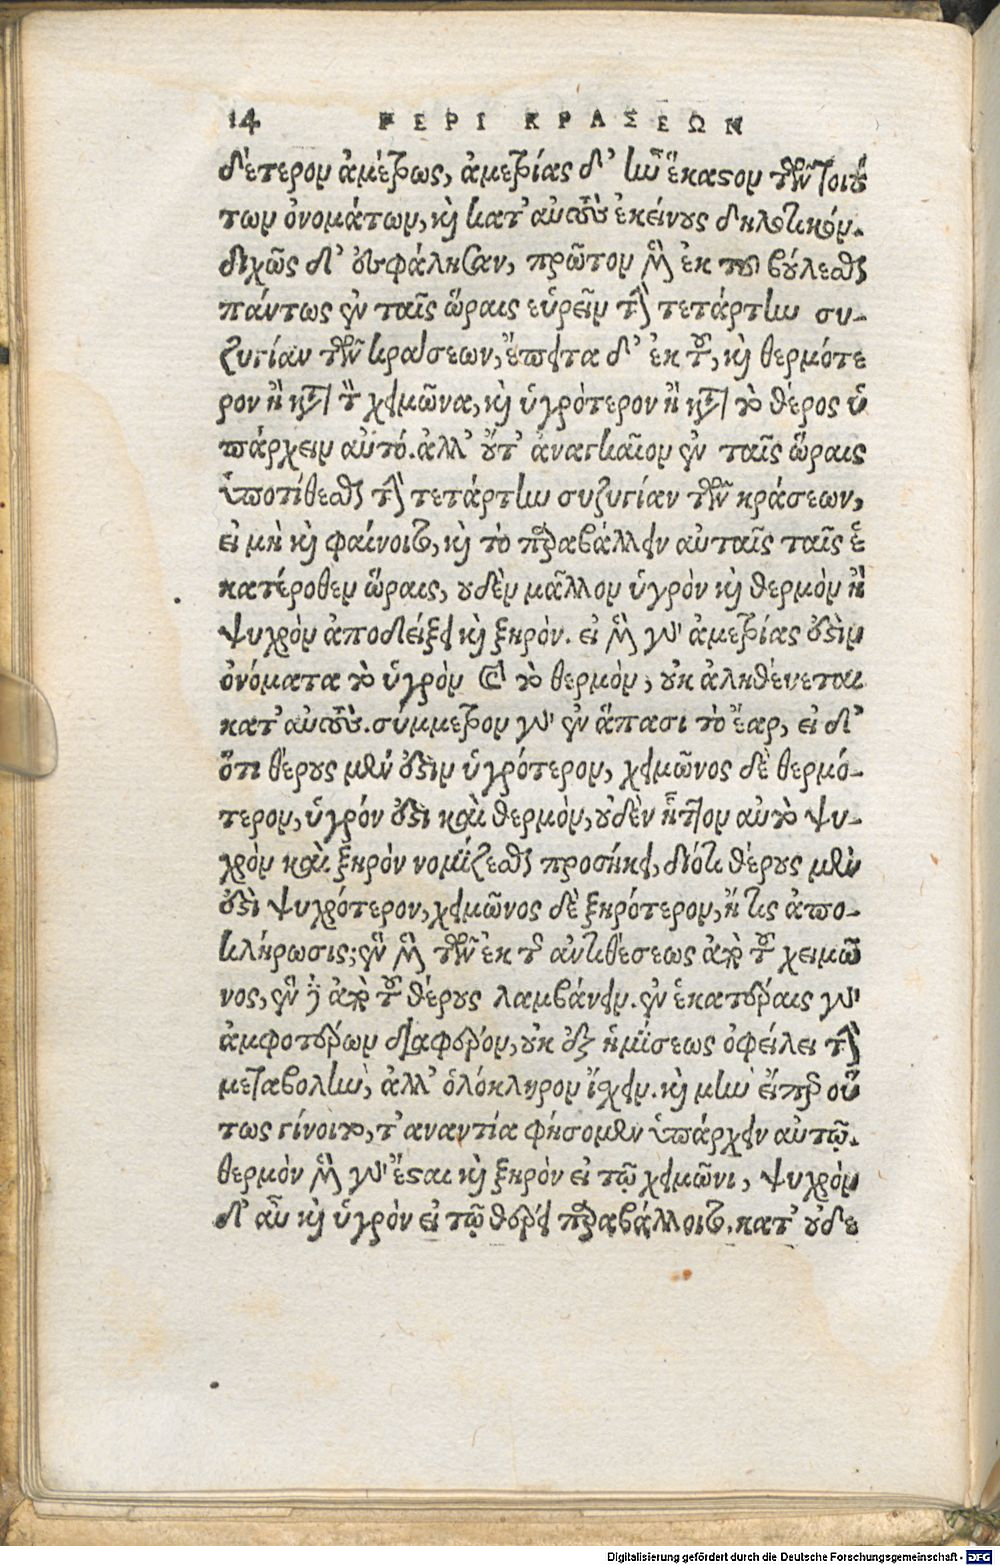 14 ΠΕΡΙ ΚΡΑΣΕΩΝ
δέτερον ἀμέτρως, ἀμετρίας δ' ἦν ἕκαστον τῶν τοιού
των ὀνομάτων, καὶ κατ' αὐτοὺς ἐκείνους δηλωτικόν.
διχῶς δ' ἐσφάλησαν, πρῶτον μὲν ἐκ τοῦ βούλεσθαι
πάντως ἐν ταῖς ὥραις εὑρεῖν τὴν τετάρτην συ-
ζυγίαν τῶν κράσεων, ἔπειτα δ' ἐκ τοῦ, καὶ θερμότε
ρον ἢ κατὰ τὸν χειμῶνα, καὶ ὑγρότερον ἢ κατὰ τὸ θέρος ὑ
πάρχειν αὐτό. ἀλλ' οὔτ' ἀναγκαῖον ἐν ταῖς ὥραις
ὑποτίθεσθαι τὴν τετάρτην συζυγίαν τῶν κράσεων,
εἰ μὴ καὶ φαίνοιτο, καὶ τὸ παραβάλλειν αὐταῖς ταῖς ἑ
κατέροθεν ὥραις, οὐδὲν μᾶλλον ὑγρὸν καὶ θερμὸν ἢ
ψυχρὸν ἀποδείξει καὶ ξηρόν. εἰ μὲν γὰρ ἀμετρίας ἐστὶν
ὀνόματα τὸ ὑγρὸν καὶ τὸ θερμὸν, οὐκ ἀληθεύεται
κατ' αὐτούς. σύμμετρον γὰρ ἐν ἅπασι τὸ ἔαρ, εἰ δ'
ὅτι θέρους μέν ἐστιν ὑγρότερον, χειμῶνος δὲ θερμό-
τερον, ὑγρόν ἐστι καὶ θερμὸν, οὐδὲν ἧττον αὐτὸ ψυ-
χρὸν καὶ ξηρὸν νομίζεσθαι προσήκει, διότι θέρους μέν
ἐστι ψυχρότερον, χειμῶνος δὲ ξηρότερον, ἤ τις ἀπο-
κλήρωσις; ἓν μὲν τῶν ἐκ τῆς ἀντιθέσεως ἀπὸ τοῦ χειμῶ
νος, ἓν δὲ ἀπὸ τοῦ θέρους λαμβάνειν. ἐν ἑκατέραις γὰρ
ἀμφοτέρων διαφέρον, οὐκ ἐξ ἡμίσεως ὀφείλει τὴν
μεταβολὴν, ἀλλ' ὁλόκληρον ἴσχειν. καὶ μὴν εἴπερ οὕ
τως γίνοιτο, τ' αναντία φήσομεν ὑπάρχειν αὐτῷ.
θερμὸν μὲν γὰρ ἔσται καὶ ξηρὸν εἰ τῷ χειμῶνι, ψυχρὸν
δ' αὖ καὶ ὑγρὸν εἰ τῷ θέρει παραβάλλοιτο. κατ' οὐδε
Digitalisierung gefördert durch die Deutsche Forschungsgemeinschaft - DFG